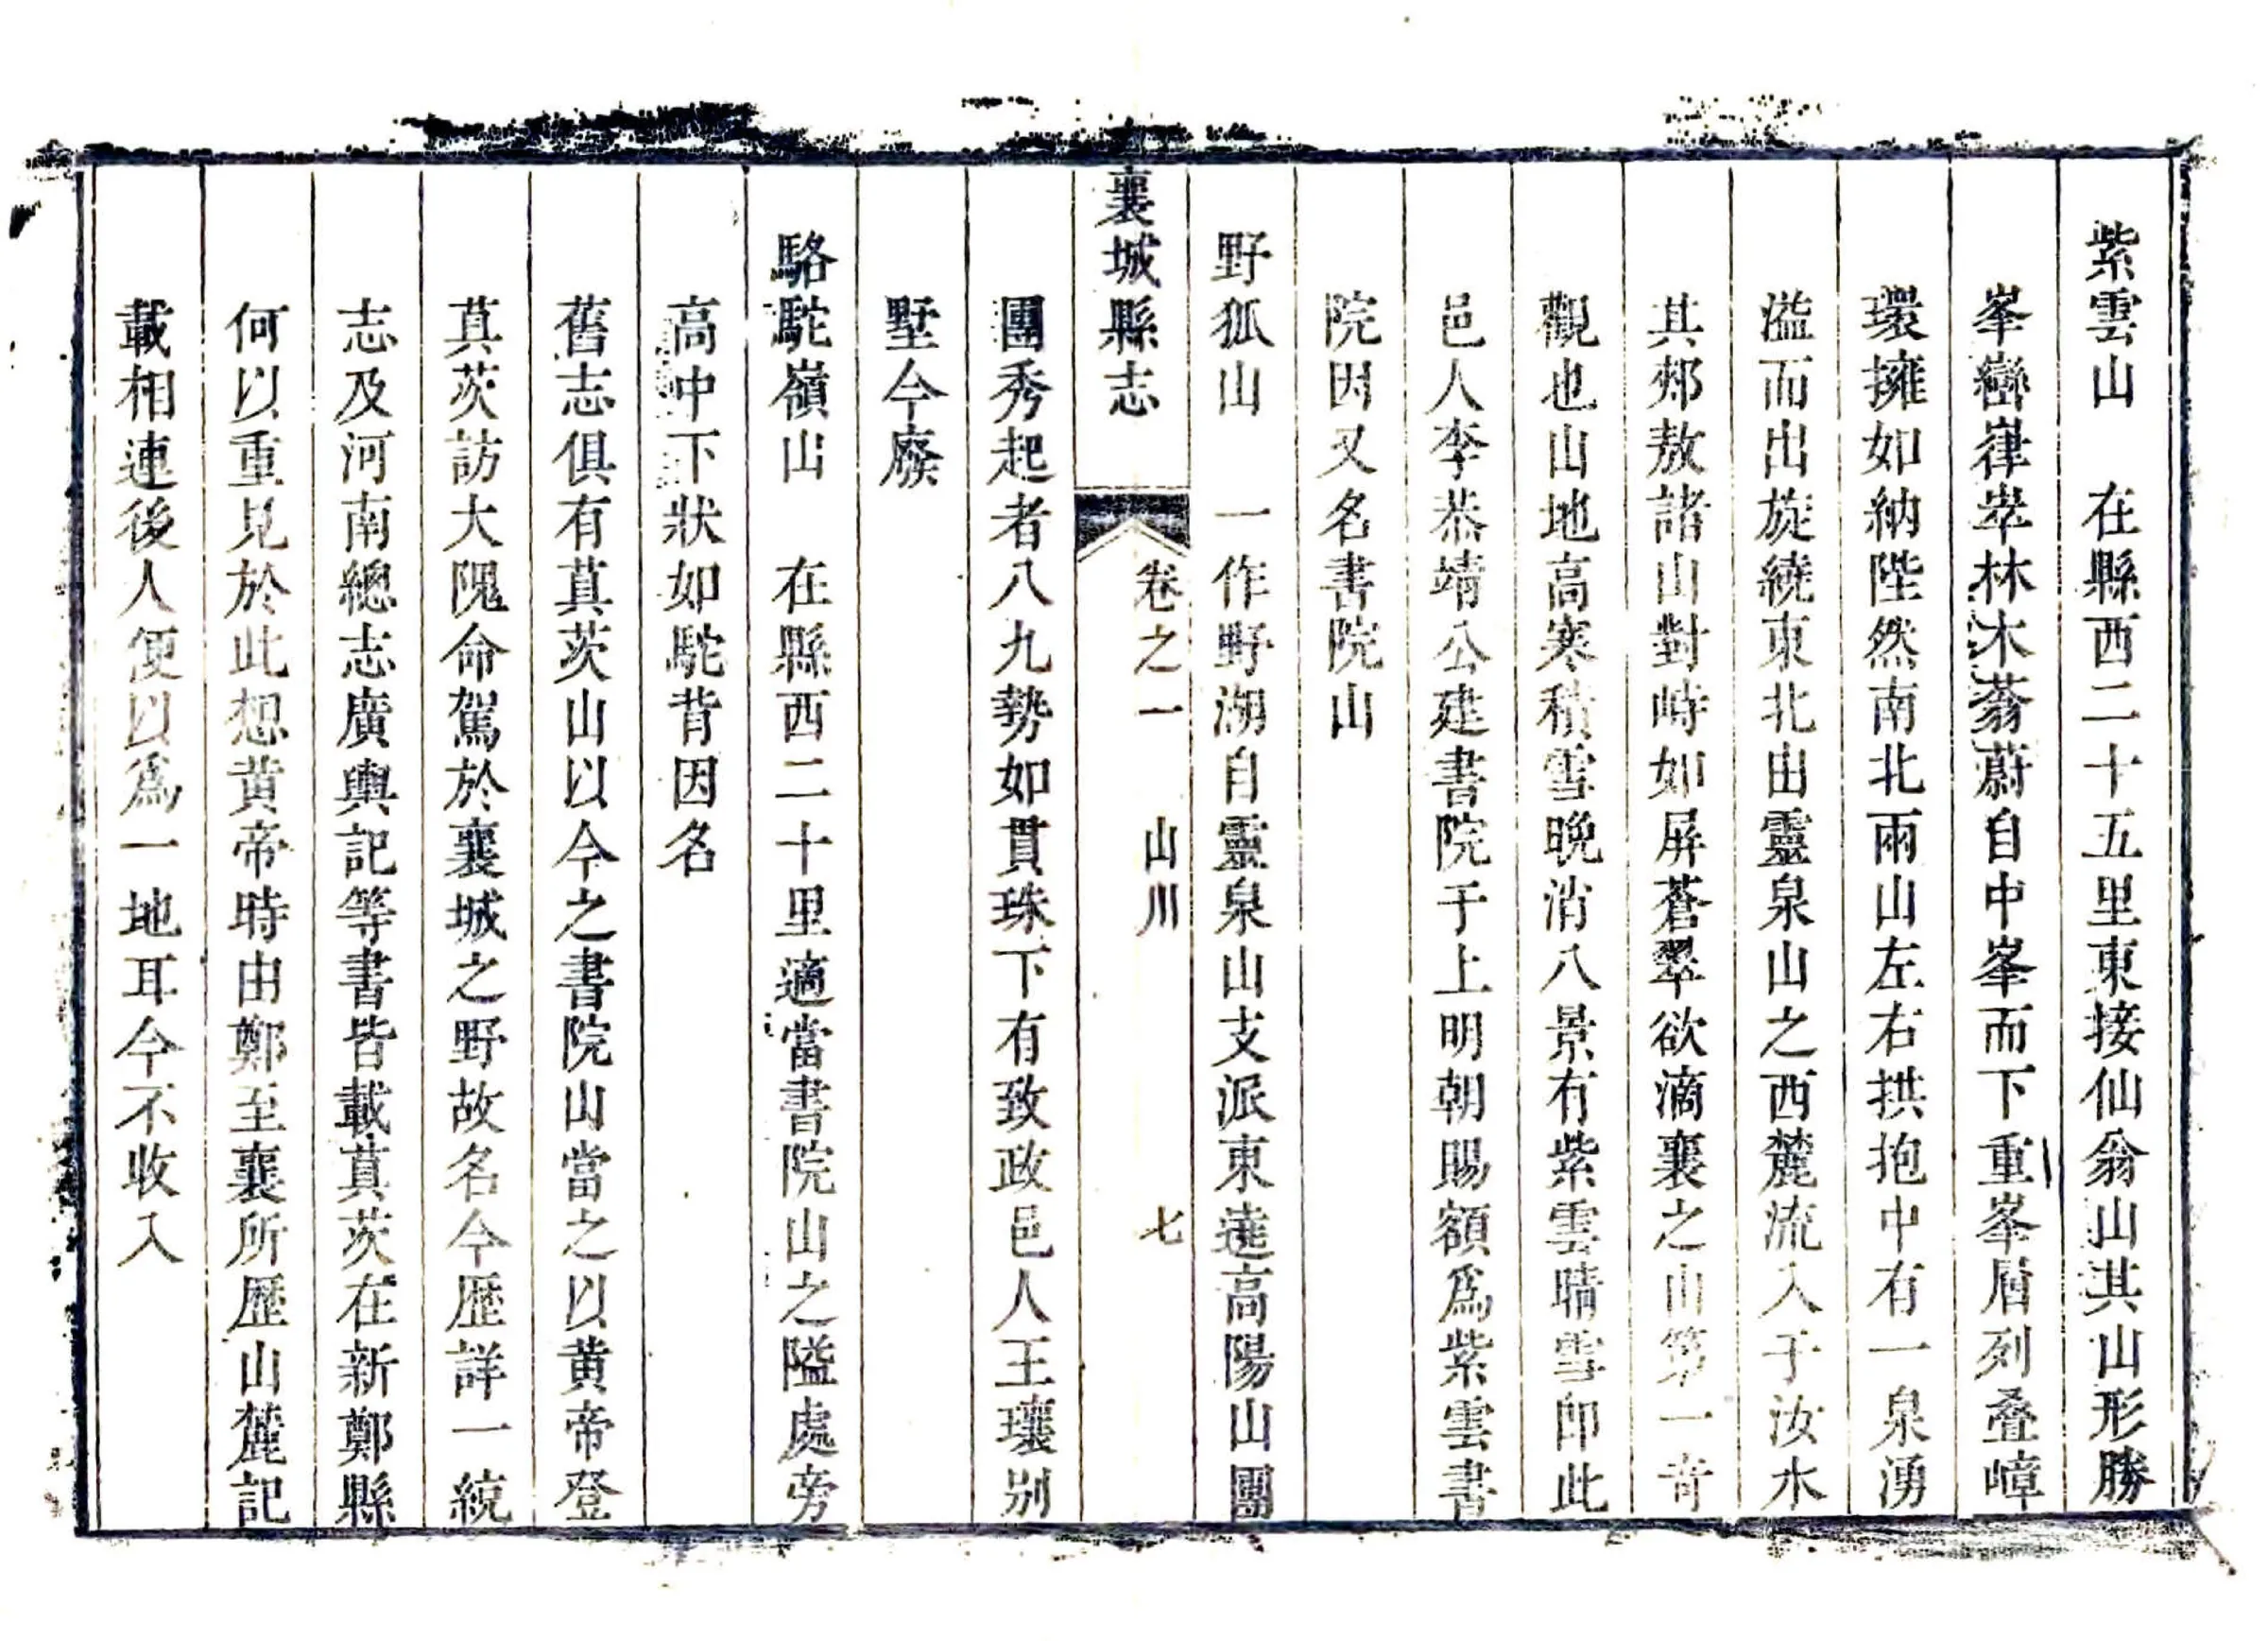 紫雲山　在縣西二十五里東接仙翁山其山形勝
峯巒嵂崒林木蓊蔚自中峯而下重峯層列叠嶂
環擁如納陛然南北兩山左右拱抱中有一泉湧
溢而出旋繞東北由靈泉山之西麓流入于汝水
其郟敖諸山對峙如屏蒼翠欲滴襄之山第一奇
觀也山地高寒積雪晚消八景有紫雲晴雪即此
邑人李恭靖公建書院于上明朝賜額爲紫雲書
院因又名書院山
野狐山　一作野湖自靈泉山支派東遶高陽山團
襄城縣志　卷之一　山川　七
團秀起者八九勢如貫珠下有致政邑人王瓖别
墅今廢
駱駝嶺山　在縣西二十里適當書院山之隘處旁
高中下狀如駝背因名
舊志俱有萯茨山以今之書院山當之以黄帝登
萯茨訪大隗命駕於襄城之野故名今歷詳一統
志及河南總志廣輿記等書皆載萯茨在新鄭縣
何以重見於此想黄帝時由鄭至襄所歷山麓記
載相連後人便以爲一地耳今不收入